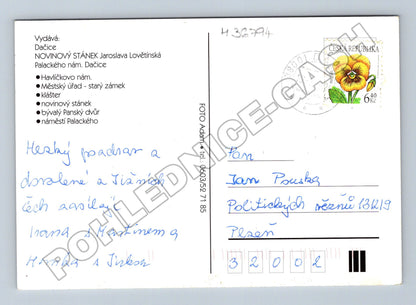 Vydává:
Dačice
NOVINOVÝ STÁNEK Jaroslava Lovětínská
Palackého nám. Dačice
• Havlíčkovo nám.
• Městský úřad - starý zámek
• klášter
• novinový stánek
• bývalý Panský dvůr
• náměstí Palackého
Hezký pozdrav z
dovolené z Jižních
Čech zasílají
Ivana s Martinem a
s Jirkou
FOTO Adam • Tel. 0603/52 71 65
H 36794
ČESKÁ REPUBLIKA
6,40
Kč
Pan
Jan Pouska
Politických vězňů
Plzeň
32002
POHLEDNICE-GASH